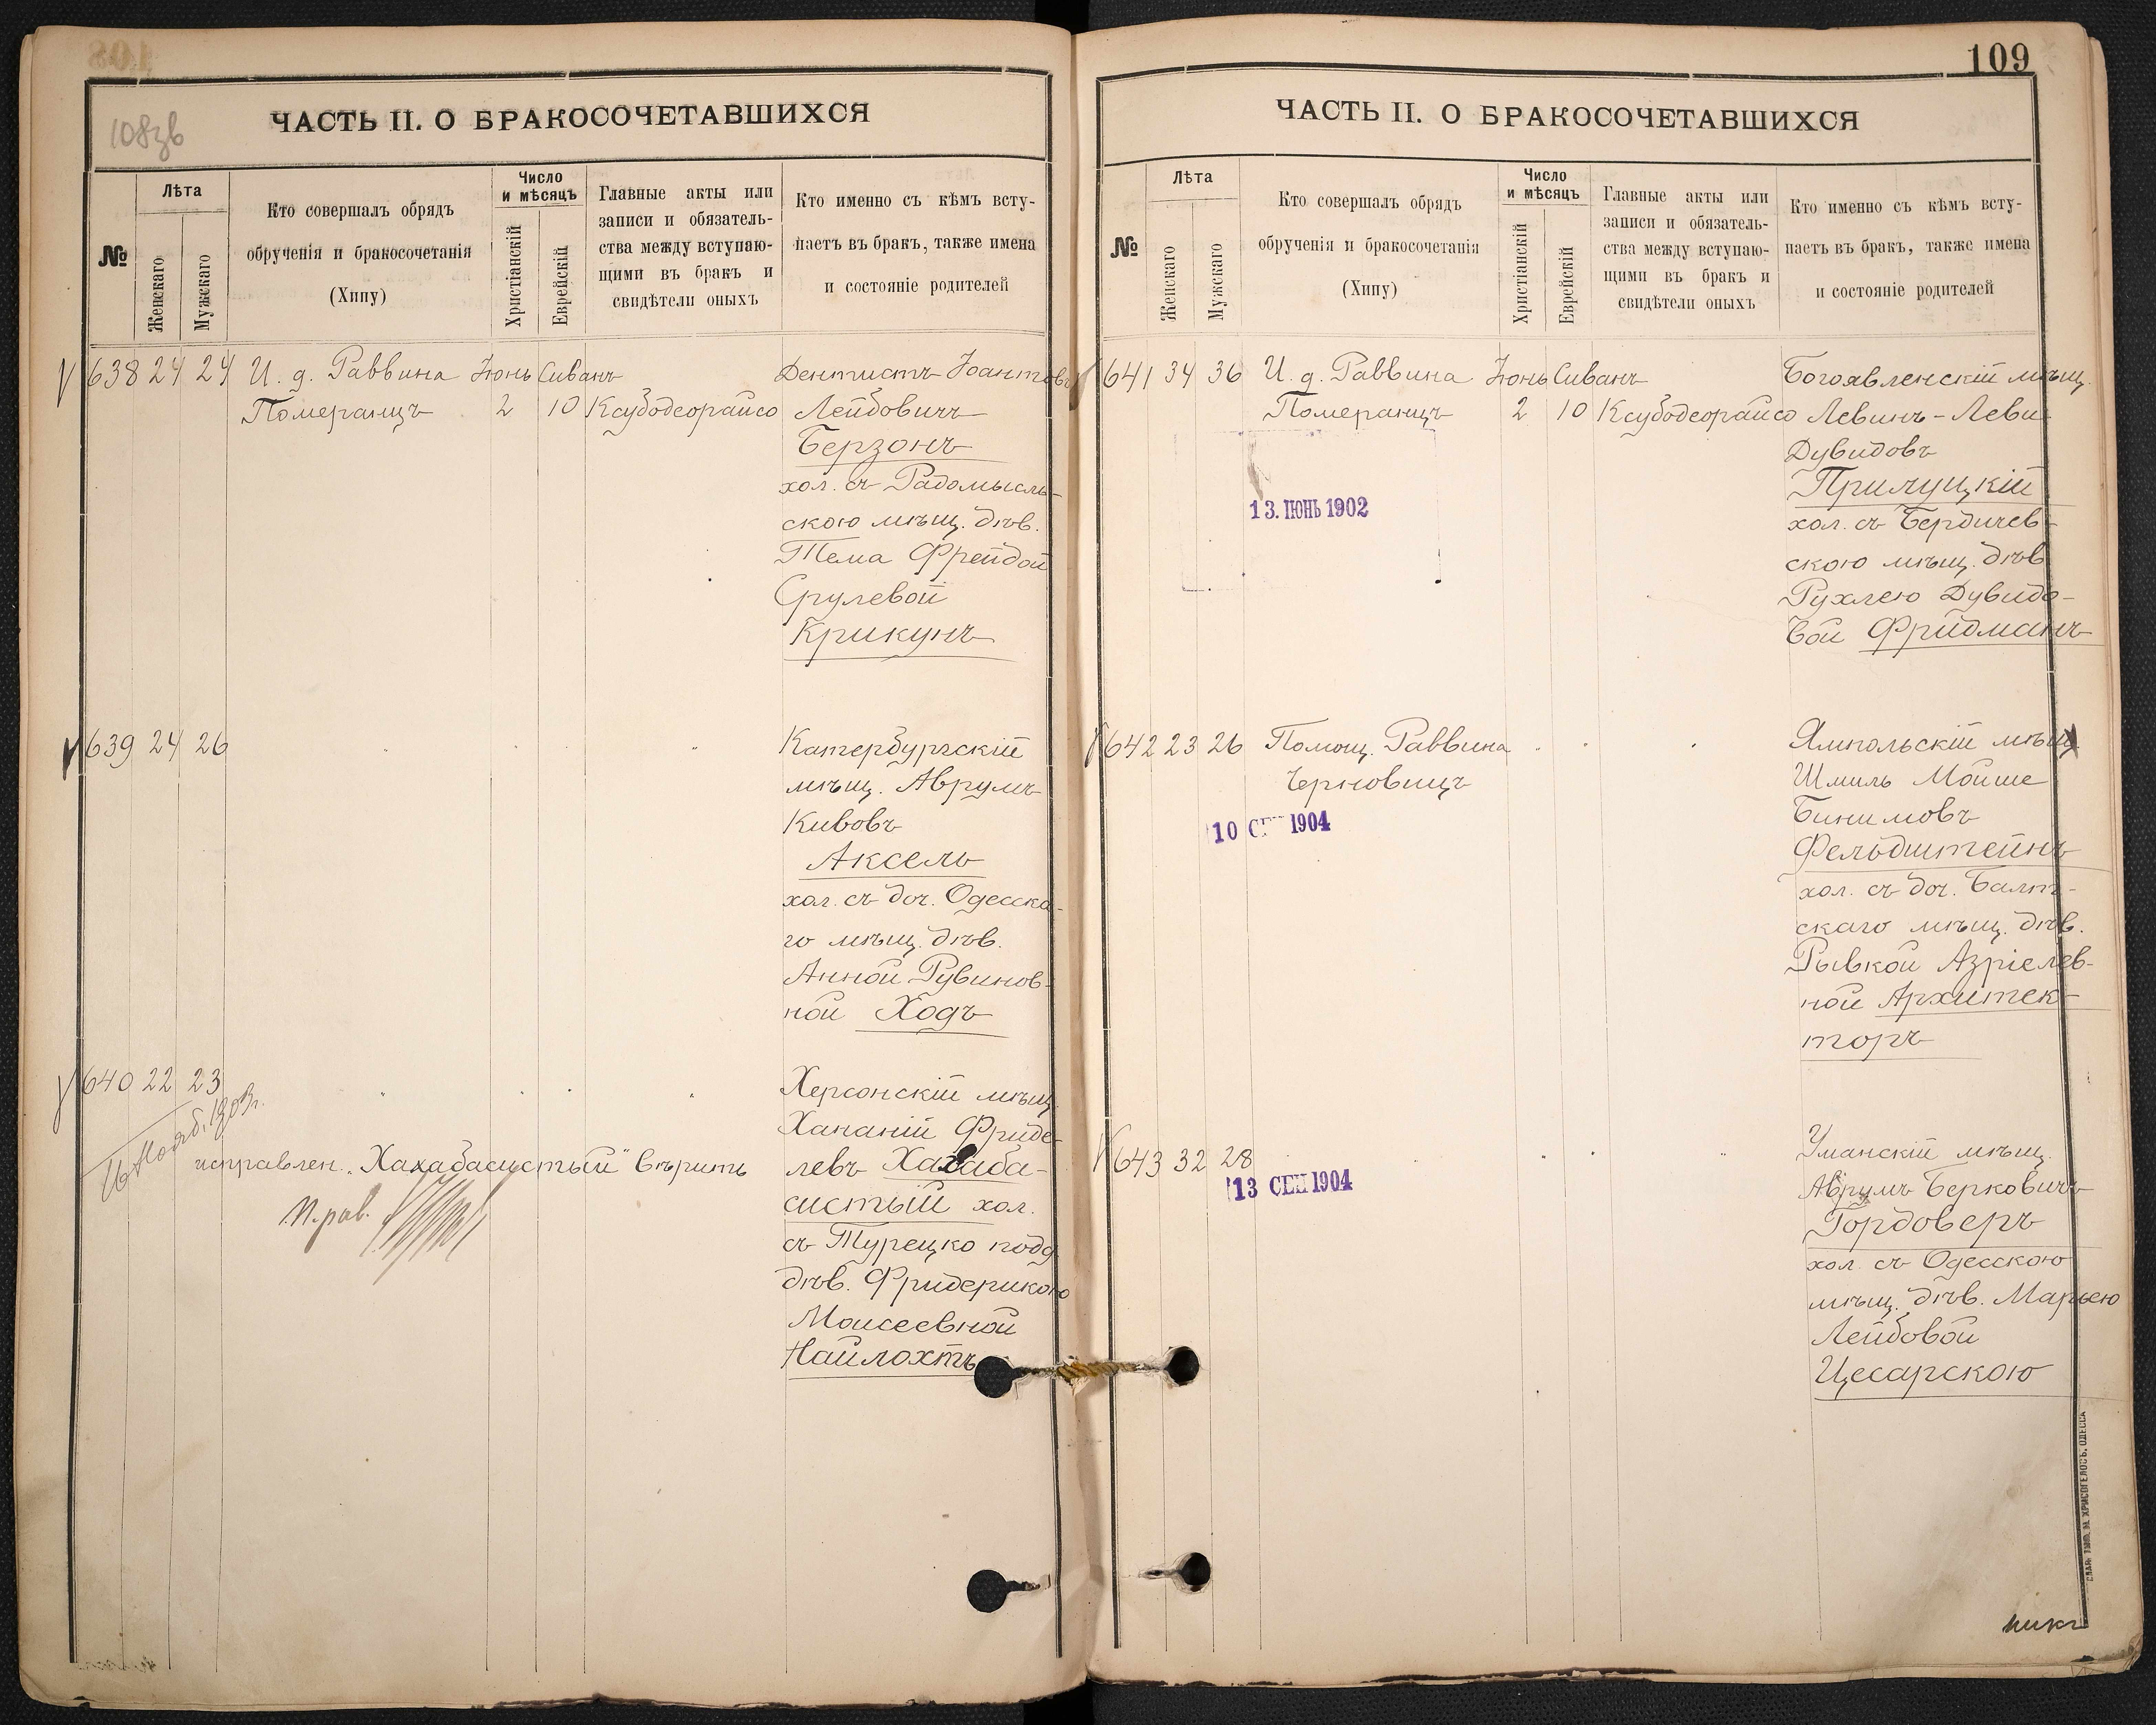 108зв
ЧАСТЬ II. О БРАКОСОЧЕТАВШИХСЯ
№
Лѣта
Женскаго
Мужскаго
Кто совершалъ обрядъ
обрученія и бракосочетанія
(Хипу)
Число
и мѣсяцъ
Христіанскій
Еврейскій
Главные акты или
записи и обязатель-
ства между вступаю-
щими въ бракъ и
свидѣтели оныхъ
Кто именно съ кѣмъ всту-
паетъ въ бракъ, также имена
и состояніе родителей
638 24 24 И. д. Раввина Іюнь Сиванъ
Померанцъ 2 10 Ксубодеорайсо
Дентистъ
Лейбовичъ
Берзонъ
хол. съ Радомысль-
скою мѣщ. дѣв.
Тема Фрейдой
Срулевой
Крикунъ
639 24 26 " " " "
Катербургскій
мѣщ. Аврумъ
Кивовъ
Аксель
хол. съ доч. Одесска-
го мѣщ. дѣв.
Анной Рувинов-
ной Ходъ
640 22 23 " " " "
16 Нояб. 1903 г.
исправлен. „Хахабасистый" вѣрить
П. рав.
Херсонскій мѣщ.
Хананій Фриде-
левъ Хахаба-
систый хол.
съ Турецко подд.
дѣв. Фридерикою
Моисеевной
Найлохтъ
109
ЧАСТЬ II. О БРАКОСОЧЕТАВШИХСЯ
№
Лѣта
Женскаго
Мужскаго
Кто совершалъ обрядъ
обрученія и бракосочетанія
(Хипу)
Число
и мѣсяцъ
Христіанскій
Еврейскій
Главные акты или
записи и обязатель-
ства между вступаю-
щими въ бракъ и
свидѣтели оныхъ
Кто именно съ кѣмъ всту-
паетъ въ бракъ, также имена
и состояніе родителей
641 34 36 И. д. Раввина Іюнь Сиванъ
Померанцъ 2 10 Ксубодеорайсо
13. ІЮНЬ 1902
Богоявленскій мѣщ.
Левинъ-Леви
Дувидовъ
Прилуцкій
хол. съ Бердичев-
скою мѣщ. дѣв.
Рухлею Дувидо-
вой Фридманъ
642 23 26 Помощ. Раввина " " "
Черновицъ
10 СЕН 1904
Ямпольскій мѣщ.
Шмиль Мойше
Бинимовъ
Фельдштейнъ
хол. съ доч. Балт-
скаго мѣщ. дѣв.
Рывкой Азріелев-
ной Архитек-
торъ
643 32 28 " " " "
13 СЕН 1904
Уманскій мѣщ.
Аврумъ Берковичъ
Гордоверъ
хол. съ Одесскою
мѣщ. дѣв. Марьею
Лейбовой
Цесарскою
СЛАВ. ТИП. Н. ХРИСОГЕЛОСЪ, ОДЕССА